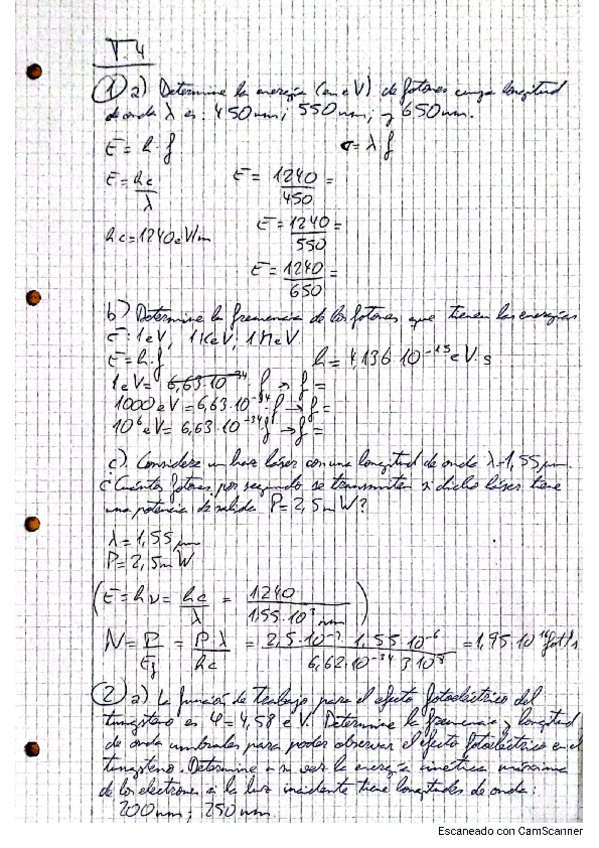 T.4
① a) Determine la energía (en eV) de fotones cuya longitud
de onda λ es: 450 nm; 550 nm; y 650 nm.
E = h·f c = λ f
E = hc/λ E = 1240/450 =
hc = 1240 eV/nm E = 1240/550 =
E = 1240/650 =
b) Determine la frecuencia de los fotones que tienen las energías
E: 1 eV, 1 KeV, 1 MeV
E = h·f h = 4,136·10⁻¹⁵ eV·s
1 eV = 6,63·10⁻³⁴ f → f =
1000 eV = 6,63·10⁻³⁴ f → f =
10⁶ eV = 6,63·10⁻³⁴ f → f =
c) Considere un haz láser con una longitud de onda λ = 1,55 μm.
¿Cuántos fotones por segundo se transmiten si dicho láser tiene
una potencia de salida P = 2,5 mW?
λ = 1,55 μm
P = 2,5 mW
(E = hν = hc/λ = 1240/1,55·10³ nm)
N = P/Ef = P λ/hc = 2,5·10⁻³ 1,55·10⁻⁶/6,62·10⁻³⁴ 3·10⁸ = 1,95·10¹⁶ fot/s
② a) La función de trabajo para el efecto fotoeléctrico del
tungsteno es φ = 4,58 eV. Determine la frecuencia y longitud
de onda umbrales para poder observar el efecto fotoeléctrico en el
tungsteno. Determine la energía cinética máxima
de los electrones si la luz incidente tiene longitudes de onda:
200 nm; 250 nm.
Escaneado con CamScanner